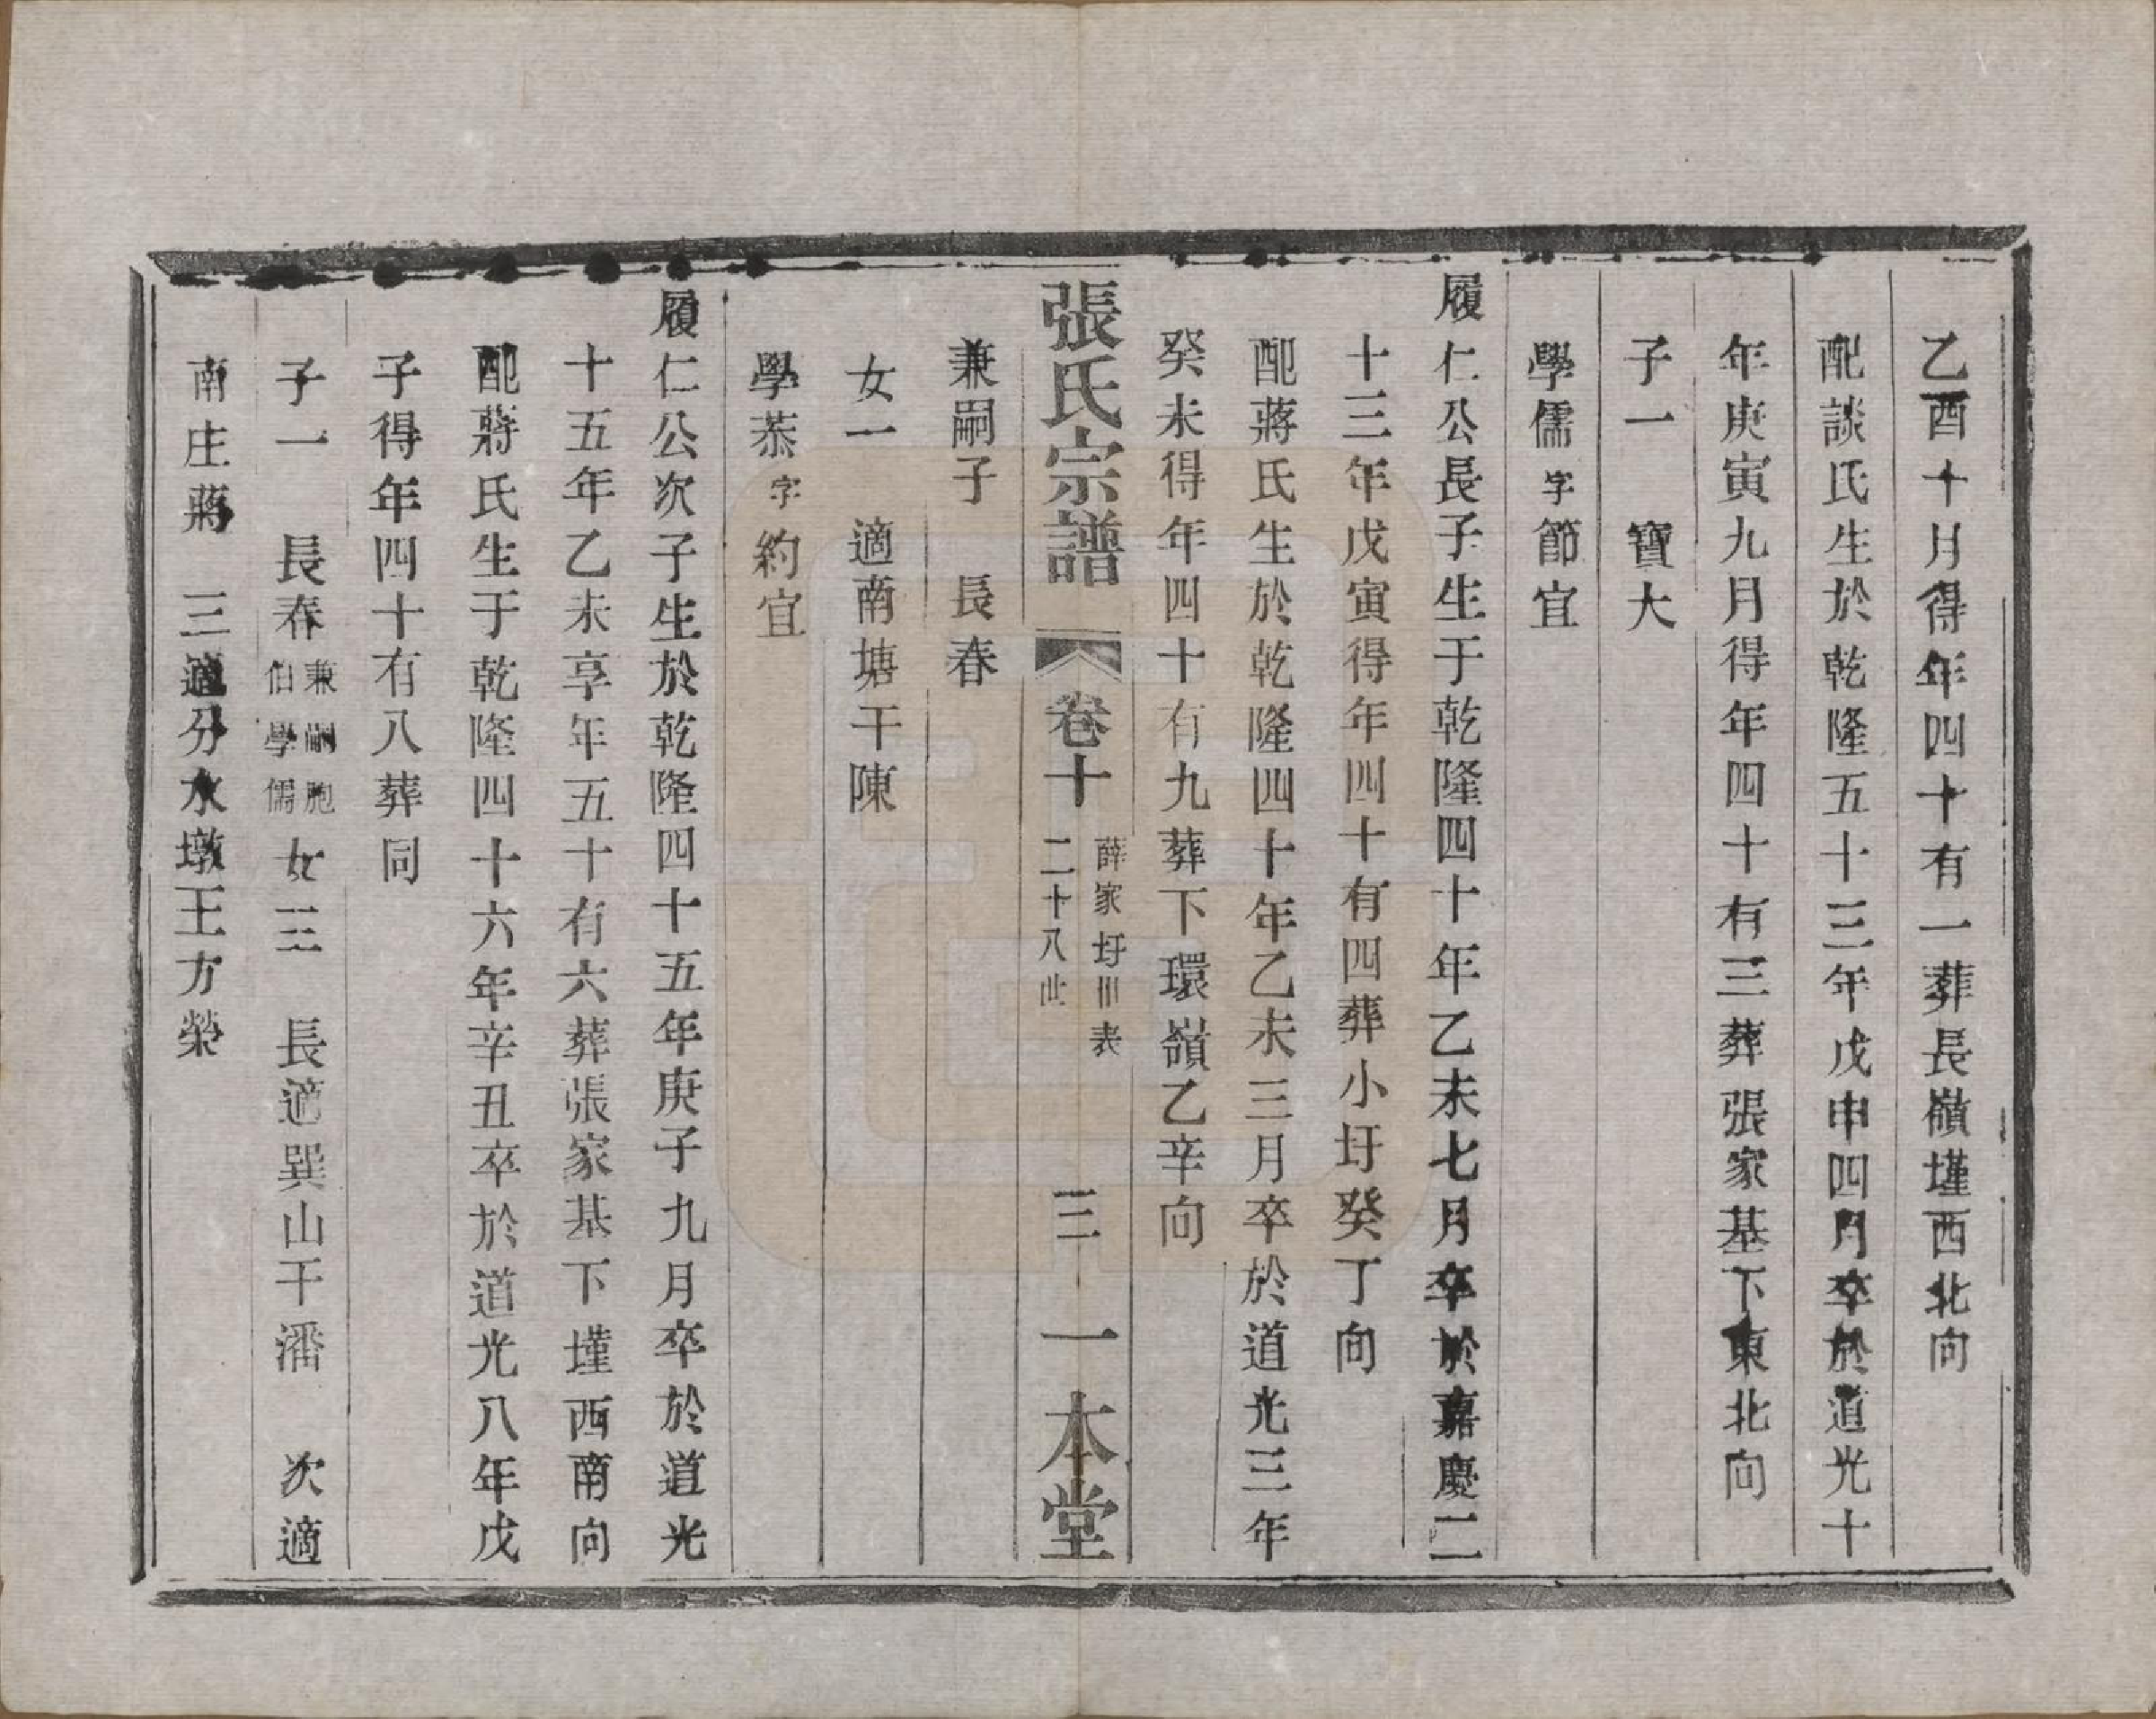 乙酉十月得年四十有一葬長嶺墐西北向
配談氏生於乾隆五十三年戊申四月卒於道光十
年庚寅九月得年四十有三葬張家基下東北向
子一　寶大
學儒字節宜
履仁公長子生于乾隆四十年乙未七月卒於嘉慶二
十三年戊寅得年四十有四葬小圩癸丁向
配蔣氏生於乾隆四十年乙未三月卒於道光三年
癸未得年四十有九葬下環嶺乙辛向
張氏宗譜　卷十　薛家圩世表　二十八世　三　一本堂
兼嗣子　長春
女一　適南塘干陳
學恭字約宜
履仁公次子生於乾隆四十五年庚子九月卒於道光
十五年乙未享年五十有六葬張家基下墐西南向
配蔣氏生于乾隆四十六年辛丑卒於道光八年戊
子得年四十有八葬同
子一　長春兼嗣胞伯學儒　女三　長適巽山干潘　次適
南庄蔣　三適分水墩王方榮